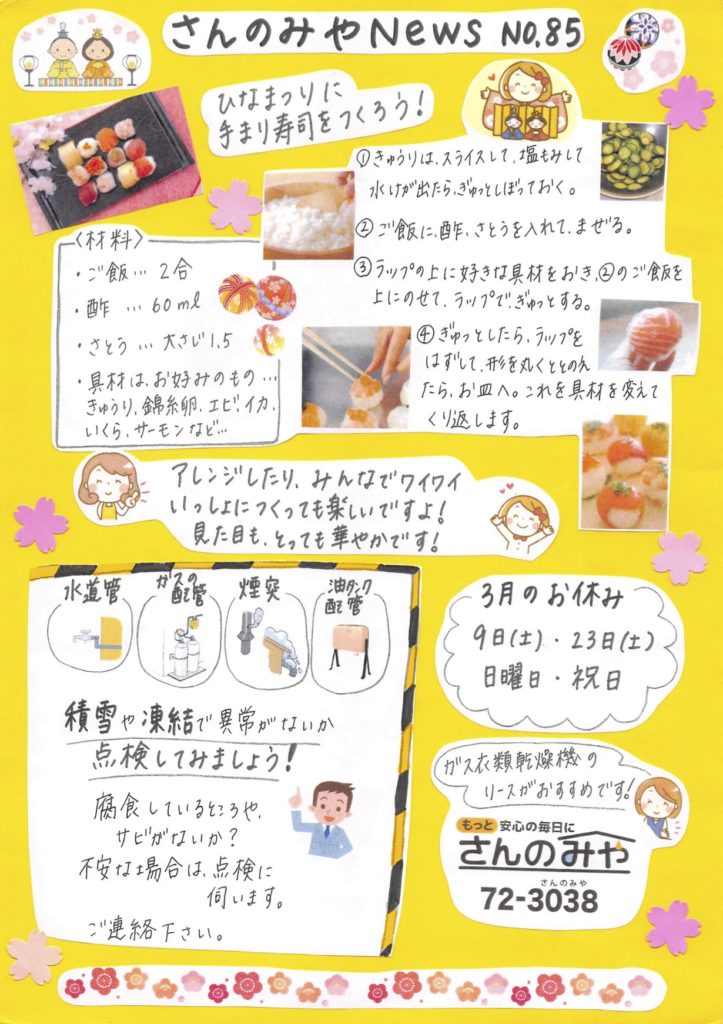 さんのみやNews NO.85
ひなまつりに
手まり寿司をつくろう!
①きゅうりは、スライスして、塩もみして
水けが出たら、ぎゅっとしぼっておく。
②ご飯に、酢、さとうを入れて、まぜる。
③ラップの上に好きな具材をおき、②のご飯を
上にのせて、ラップで、ぎゅっとする。
④ぎゅっとしたら、ラップを
はずして、形を丸くととのえ
たら、お皿へ。これを具材を変えて
くり返します。
〈材料〉
・ご飯…2合
・酢…60ml
・さとう…大さじ1.5
・具材は、お好みのもの…
きゅうり、錦糸卵、エビ、イカ、
いくら、サーモンなど…
アレンジしたり、みんなでワイワイ
いっしょにつくっても楽しいですよ!
見た目も、とっても華やかです!
水道管
ガスの
配管
煙突
油タンク
配管
積雪や凍結で異常がないか
点検してみましょう!
腐食しているところや、
サビがないか?
不安な場合は、点検に
伺います。
ご連絡下さい。
3月のお休み
9日(土)・23日(土)
日曜日・祝日
ガス衣類乾燥機の
リースがおすすめです!
もっと 安心の毎日に
さんのみや
さんのみや
72-3038